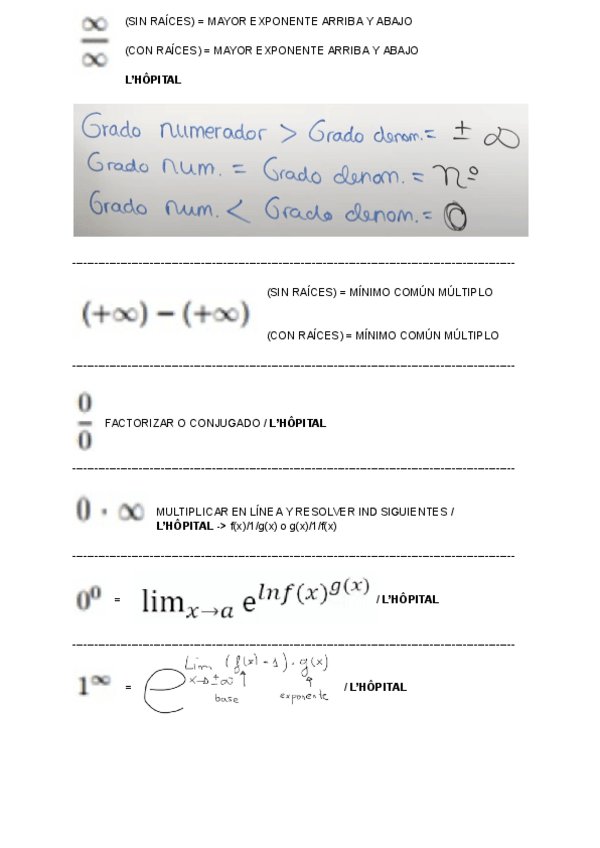 ∞/∞ (SIN RAÍCES) = MAYOR EXPONENTE ARRIBA Y ABAJO
(CON RAÍCES) = MAYOR EXPONENTE ARRIBA Y ABAJO
L'HÔPITAL
Grado numerador > Grado denom. = ± ∞
Grado num. = Grado denom. = nº
Grado num. < Grado denom. = 0
(+∞) − (+∞)
(SIN RAÍCES) = MÍNIMO COMÚN MÚLTIPLO
(CON RAÍCES) = MÍNIMO COMÚN MÚLTIPLO
0/0 FACTORIZAR O CONJUGADO / L'HÔPITAL
0 · ∞ MULTIPLICAR EN LÍNEA Y RESOLVER IND SIGUIENTES /
L'HÔPITAL -> f(x)/1/g(x) o g(x)/1/f(x)
0⁰ = lim x→a e^ln f(x)^g(x) / L'HÔPITAL
1^∞ = e^Lim x→±∞ (f(x) - 1) · g(x) / L'HÔPITAL
base exponente